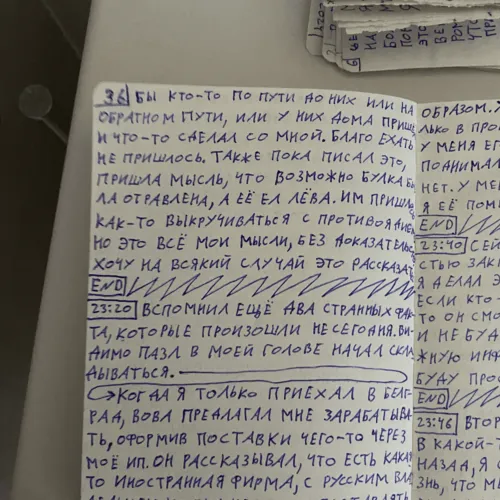 36 БЫ КТО-ТО ПО ПУТИ ДО НИХ ИЛИ НА
ОБРАТНОМ ПУТИ, ИЛИ У НИХ ДОМА ПРИШЕ
И ЧТО-ТО СДЕЛАЛ СО МНОЙ. БЛАГО ЕХАТЬ
НЕ ПРИШЛОСЬ. ТАКЖЕ ПОКА ПИСАЛ ЭТО,
ПРИШЛА МЫСЛЬ, ЧТО ВОЗМОЖНО БУЛКА БЫ
ЛА ОТРАВЛЕНА, А ЕЁ ЕЛ ЛЁВА. ИМ ПРИШЛО
КАК-ТО ВЫКРУЧИВАТЬСЯ С ПРОТИВОЯДИЕ
НО ЭТО ВСЁ МОИ МЫСЛИ, БЕЗ ДОКАЗАТЕЛЬС
ХОЧУ НА ВСЯКИЙ СЛУЧАЙ ЭТО РАССКАЗАТ
END
23:20 ВСПОМНИЛ ЕЩЁ ДВА СТРАННЫХ ФАК-
ТА, КОТОРЫЕ ПРОИЗОШЛИ НЕ СЕГОДНЯ. ВИ-
ДИМО ПАЗЛ В МОЕЙ ГОЛОВЕ НАЧАЛ СКЛА
ДЫВАТЬСЯ.
КОГДА Я ТОЛЬКО ПРИЕХАЛ В БЕЛГ-
РАД, ВОВА ПРЕДЛАГАЛ МНЕ ЗАРАБАТЫВА-
ТЬ, ОФОРМИВ ПОСТАВКИ ЧЕГО-ТО ЧЕРЕЗ
МОЁ ИП. ОН РАССКАЗЫВАЛ, ЧТО ЕСТЬ КАКАЯ
ТО ИНОСТРАННАЯ ФИРМА, С РУССКИМ ВЛА
ОБРАЗОМ. Х
ЛЬКО В ПРО
У МЕНЯ ЕГ
ПОДНИМАЛ
НЕТ. У МЕ
Я ЕЁ ПОМ
END
23:40 СЕЙ
СТЬЮ ЗАК
Я ДЕЛАЛ Э
ЕСЛИ КТО-
ТО ОН СМО
И НЕ БУД
ЖНУЮ ИНФ
БУДУ ПРО
END
23:46 ВТОР
В КАКОЙ-Т
НАЗАД, Я
ЗНЬ, ЧТО МЕ